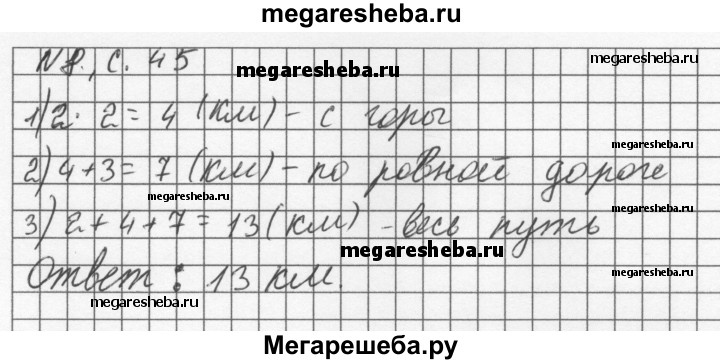 megaresheba.ru
N 8., с. 45
megaresheba.ru
megaresheba.ru
1) 2 · 2 = 4 (км) - с горы
megaresheba.ru
2) 4 + 3 = 7 (км) - по ровной дороге
megaresheba.ru
3) 2 + 4 + 7 = 13 (км) - весь путь
megaresheba.ru
megaresheba.ru
Ответ : 13 км.
megaresheba.ru
Мегарешеба.ру